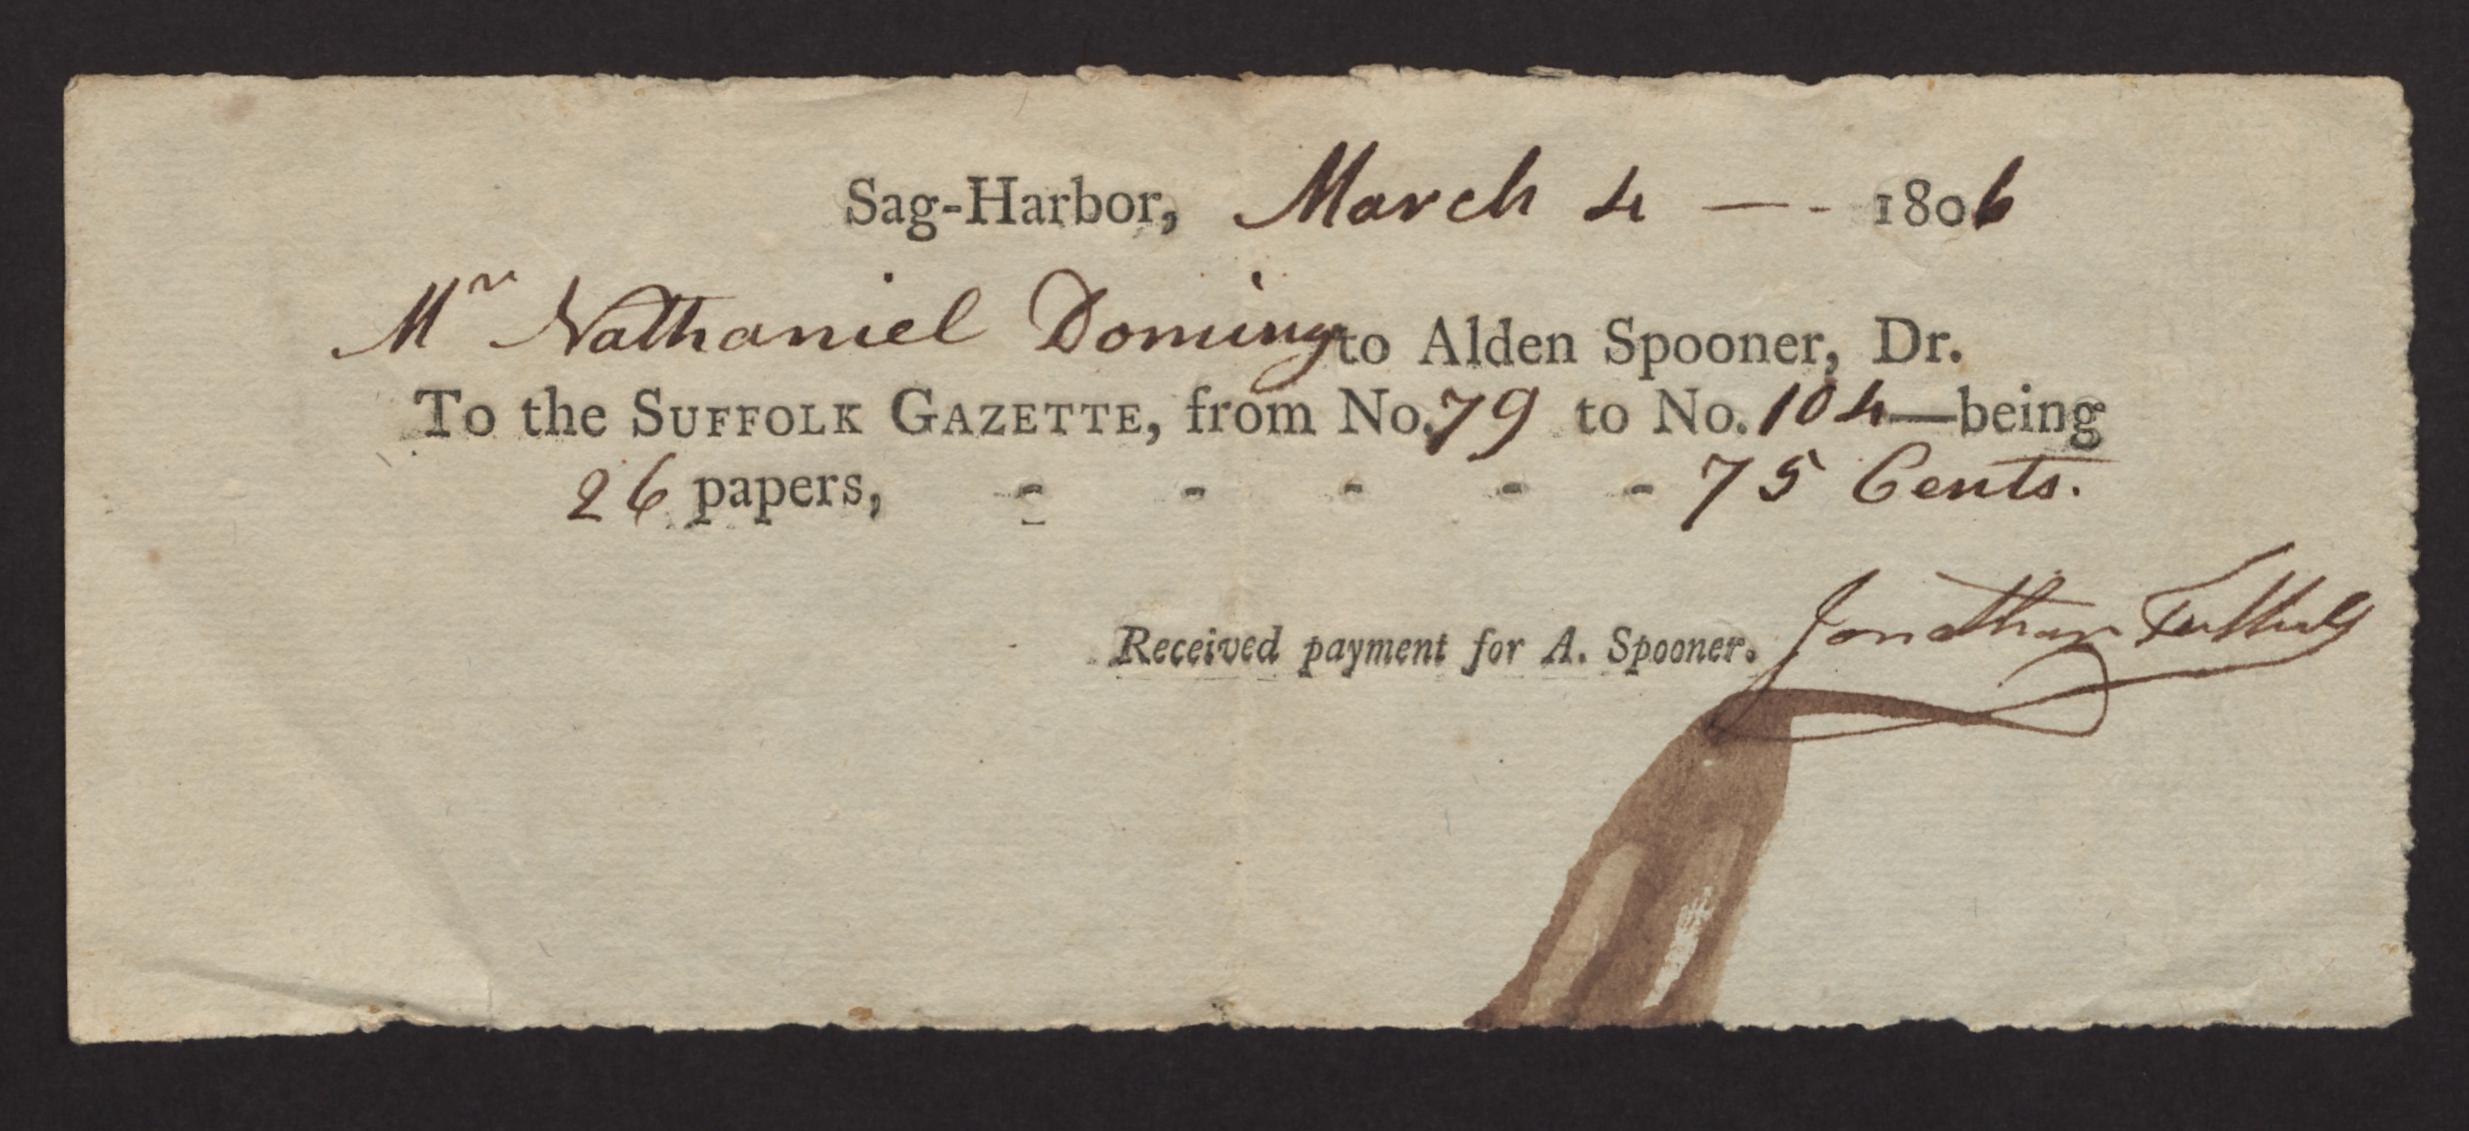 Sag-Harbor, March 4 — - 1806
Mr Nathaniel Doming to Alden Spooner, Dr.
To the SUFFOLK GAZETTE, from No. 79 to No. 104—being
26 papers, - - - - - 75 Cents.
Received payment for A. Spooner. Jonathan Tuthill